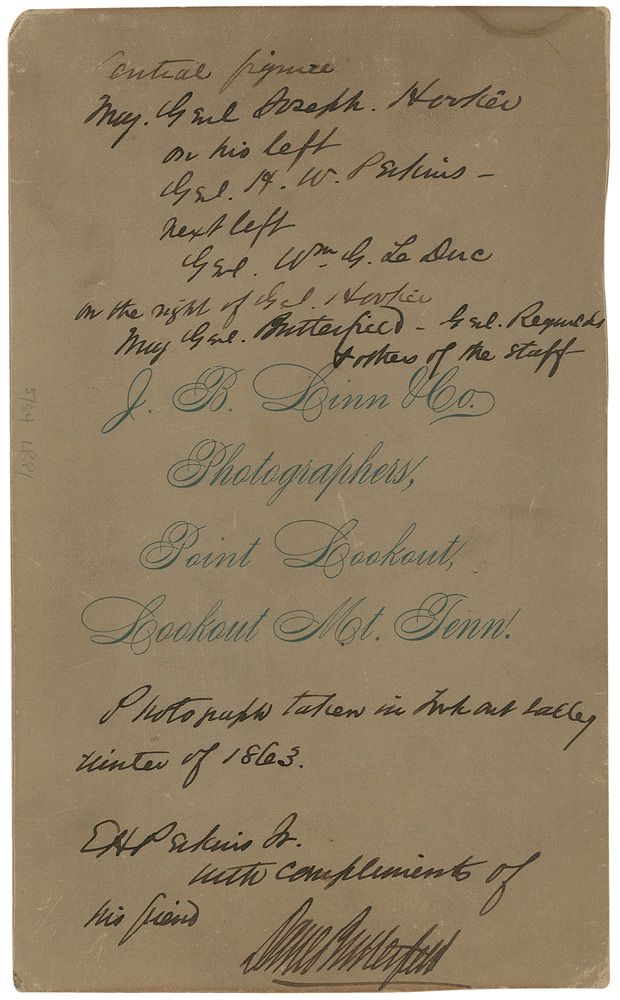 Central figure
Maj. Genl Joseph. Hooker
on his left
Genl. H. W. Perkins -
next left
Genl. Wm G. Le Duc
on the right of Genl. Hooker
Maj Genl. Butterfield - Genl. Reynolds
& others of the staff
J. B. Linn & Co.
Photographers,
Point Lookout,
Lookout Mt. Tenn.
Photograph taken in Lookout Valley
winter of 1863.
E H Perkins Jr.
with compliments of
his friend
Danl Butterfield